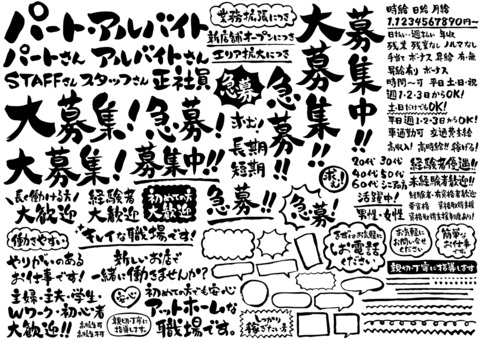 パート・アルバイト
パートさん アルバイトさん
STAFFさん スタッフさん 正社員
大募集! 急募!
大募集! 募集中!!
長く働ける方!
大歓迎
経験者
大歓迎
初めての方
大歓迎
働きやすい
キレイな職場です!
やりがいのある
お仕事です!
新しいお店で
一緒に働きませんか?
主婦・主夫・学生・
Wワーク・初心者
大歓迎!!
安心
初めての方でも安心
アットホームな
職場です。
親切・丁寧に
指導します。
業務拡張につき
新店舗オープンにつき
エリア拡大につき
急募
求む!
長期
短期
急募!!
大募集!!
募集中!!
求む!
急募!
まずはお気軽に
お電話
ください
お気軽に
お問い合せ
ください
簡単な
お仕事
です
親切・丁寧に指導します
しっかり
稼ぎたい方
時給 日給 月給
1.1234567890円〜
日払い・週払い 年収
残業 残業なし ノルマなし
手当て ボーナス 昇給 有・無
昇給有り ボーナス
時間〜可 平日 土・日・祝
週1・2・3日からOK!
土日だけでもOK!
平日 週1・2・3日からOK!
車通勤可 交通費支給
高収入! 高時給!! 稼げる!
20代 30代
40代 50代
60代 シニア高
活躍中!
男性・女性
経験者優遇!!
未経験者歓迎!!
経験者・有資格者歓迎
要資格 資格取得支援
資格取得支援制度あり!